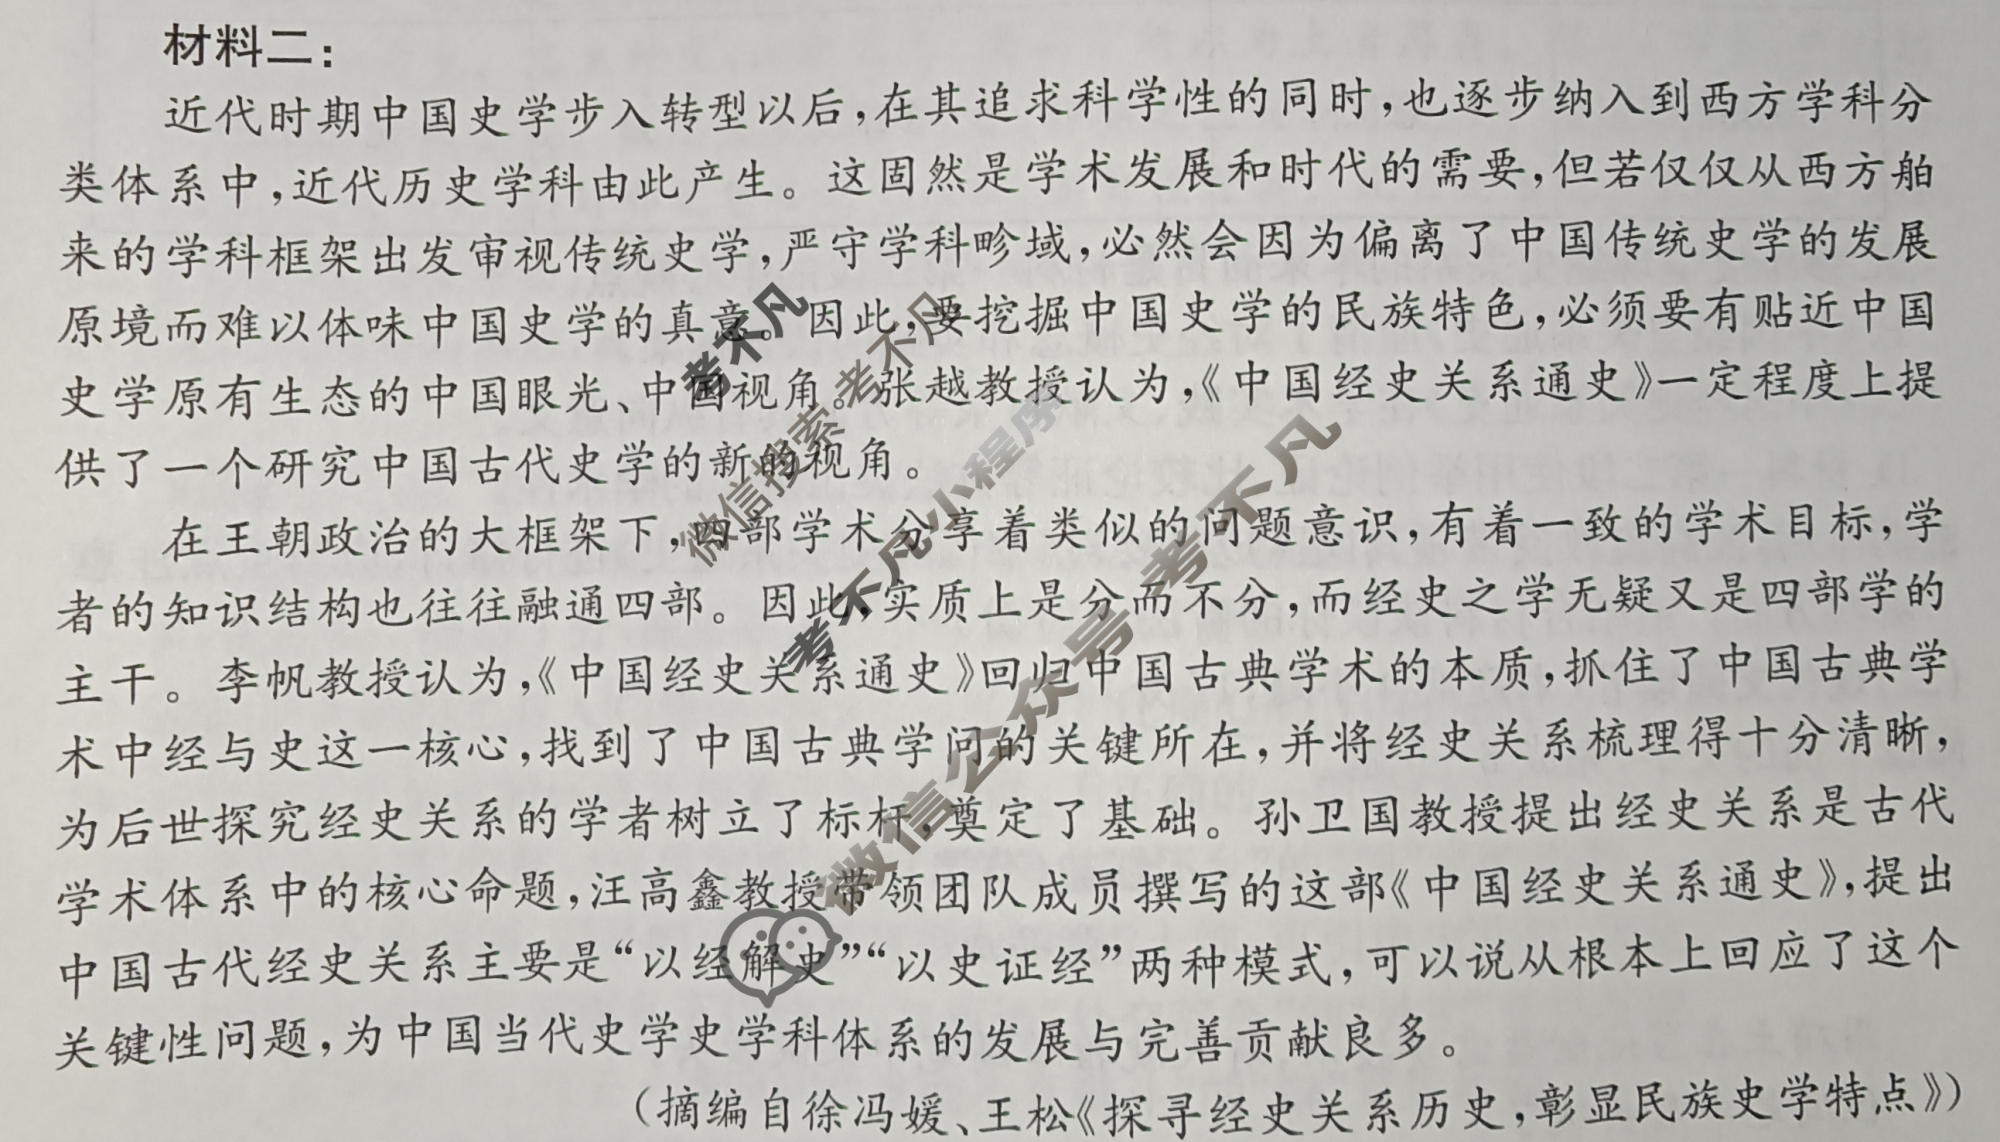 材料二：
近代时期中国史学步入转型以后，在其追求科学性的同时，也逐步纳入到西方学科分
类体系中，近代历史学科由此产生。这固然是学术发展和时代的需要，但若仅仅从西方舶
来的学科框架出发审视传统史学，严守学科畛域，必然会因为偏离了中国传统史学的发展
原境而难以体味中国史学的真意。因此，要挖掘中国史学的民族特色，必须要有贴近中国
史学原有生态的中国眼光、中国视角。张越教授认为，《中国经史关系通史》一定程度上提
供了一个研究中国古代史学的新的视角。
在王朝政治的大框架下，四部学术分享着类似的问题意识，有着一致的学术目标，学
者的知识结构也往往融通四部。因此，实质上是分而不分，而经史之学无疑又是四部学的
主干。李帆教授认为，《中国经史关系通史》回归中国古典学术的本质，抓住了中国古典学
术中经与史这一核心，找到了中国古典学问的关键所在，并将经史关系梳理得十分清晰，
为后世探究经史关系的学者树立了标杆，奠定了基础。孙卫国教授提出经史关系是古代
学术体系中的核心命题，汪高鑫教授带领团队成员撰写的这部《中国经史关系通史》，提出
中国古代经史关系主要是“以经解史”“以史证经”两种模式，可以说从根本上回应了这个
关键性问题，为中国当代史学史学科体系的发展与完善贡献良多。
（摘编自徐冯媛、王松《探寻经史关系历史，彰显民族史学特点》）
考不凡
微信搜索 考不凡
考不凡小程序
微信公众号 考不凡